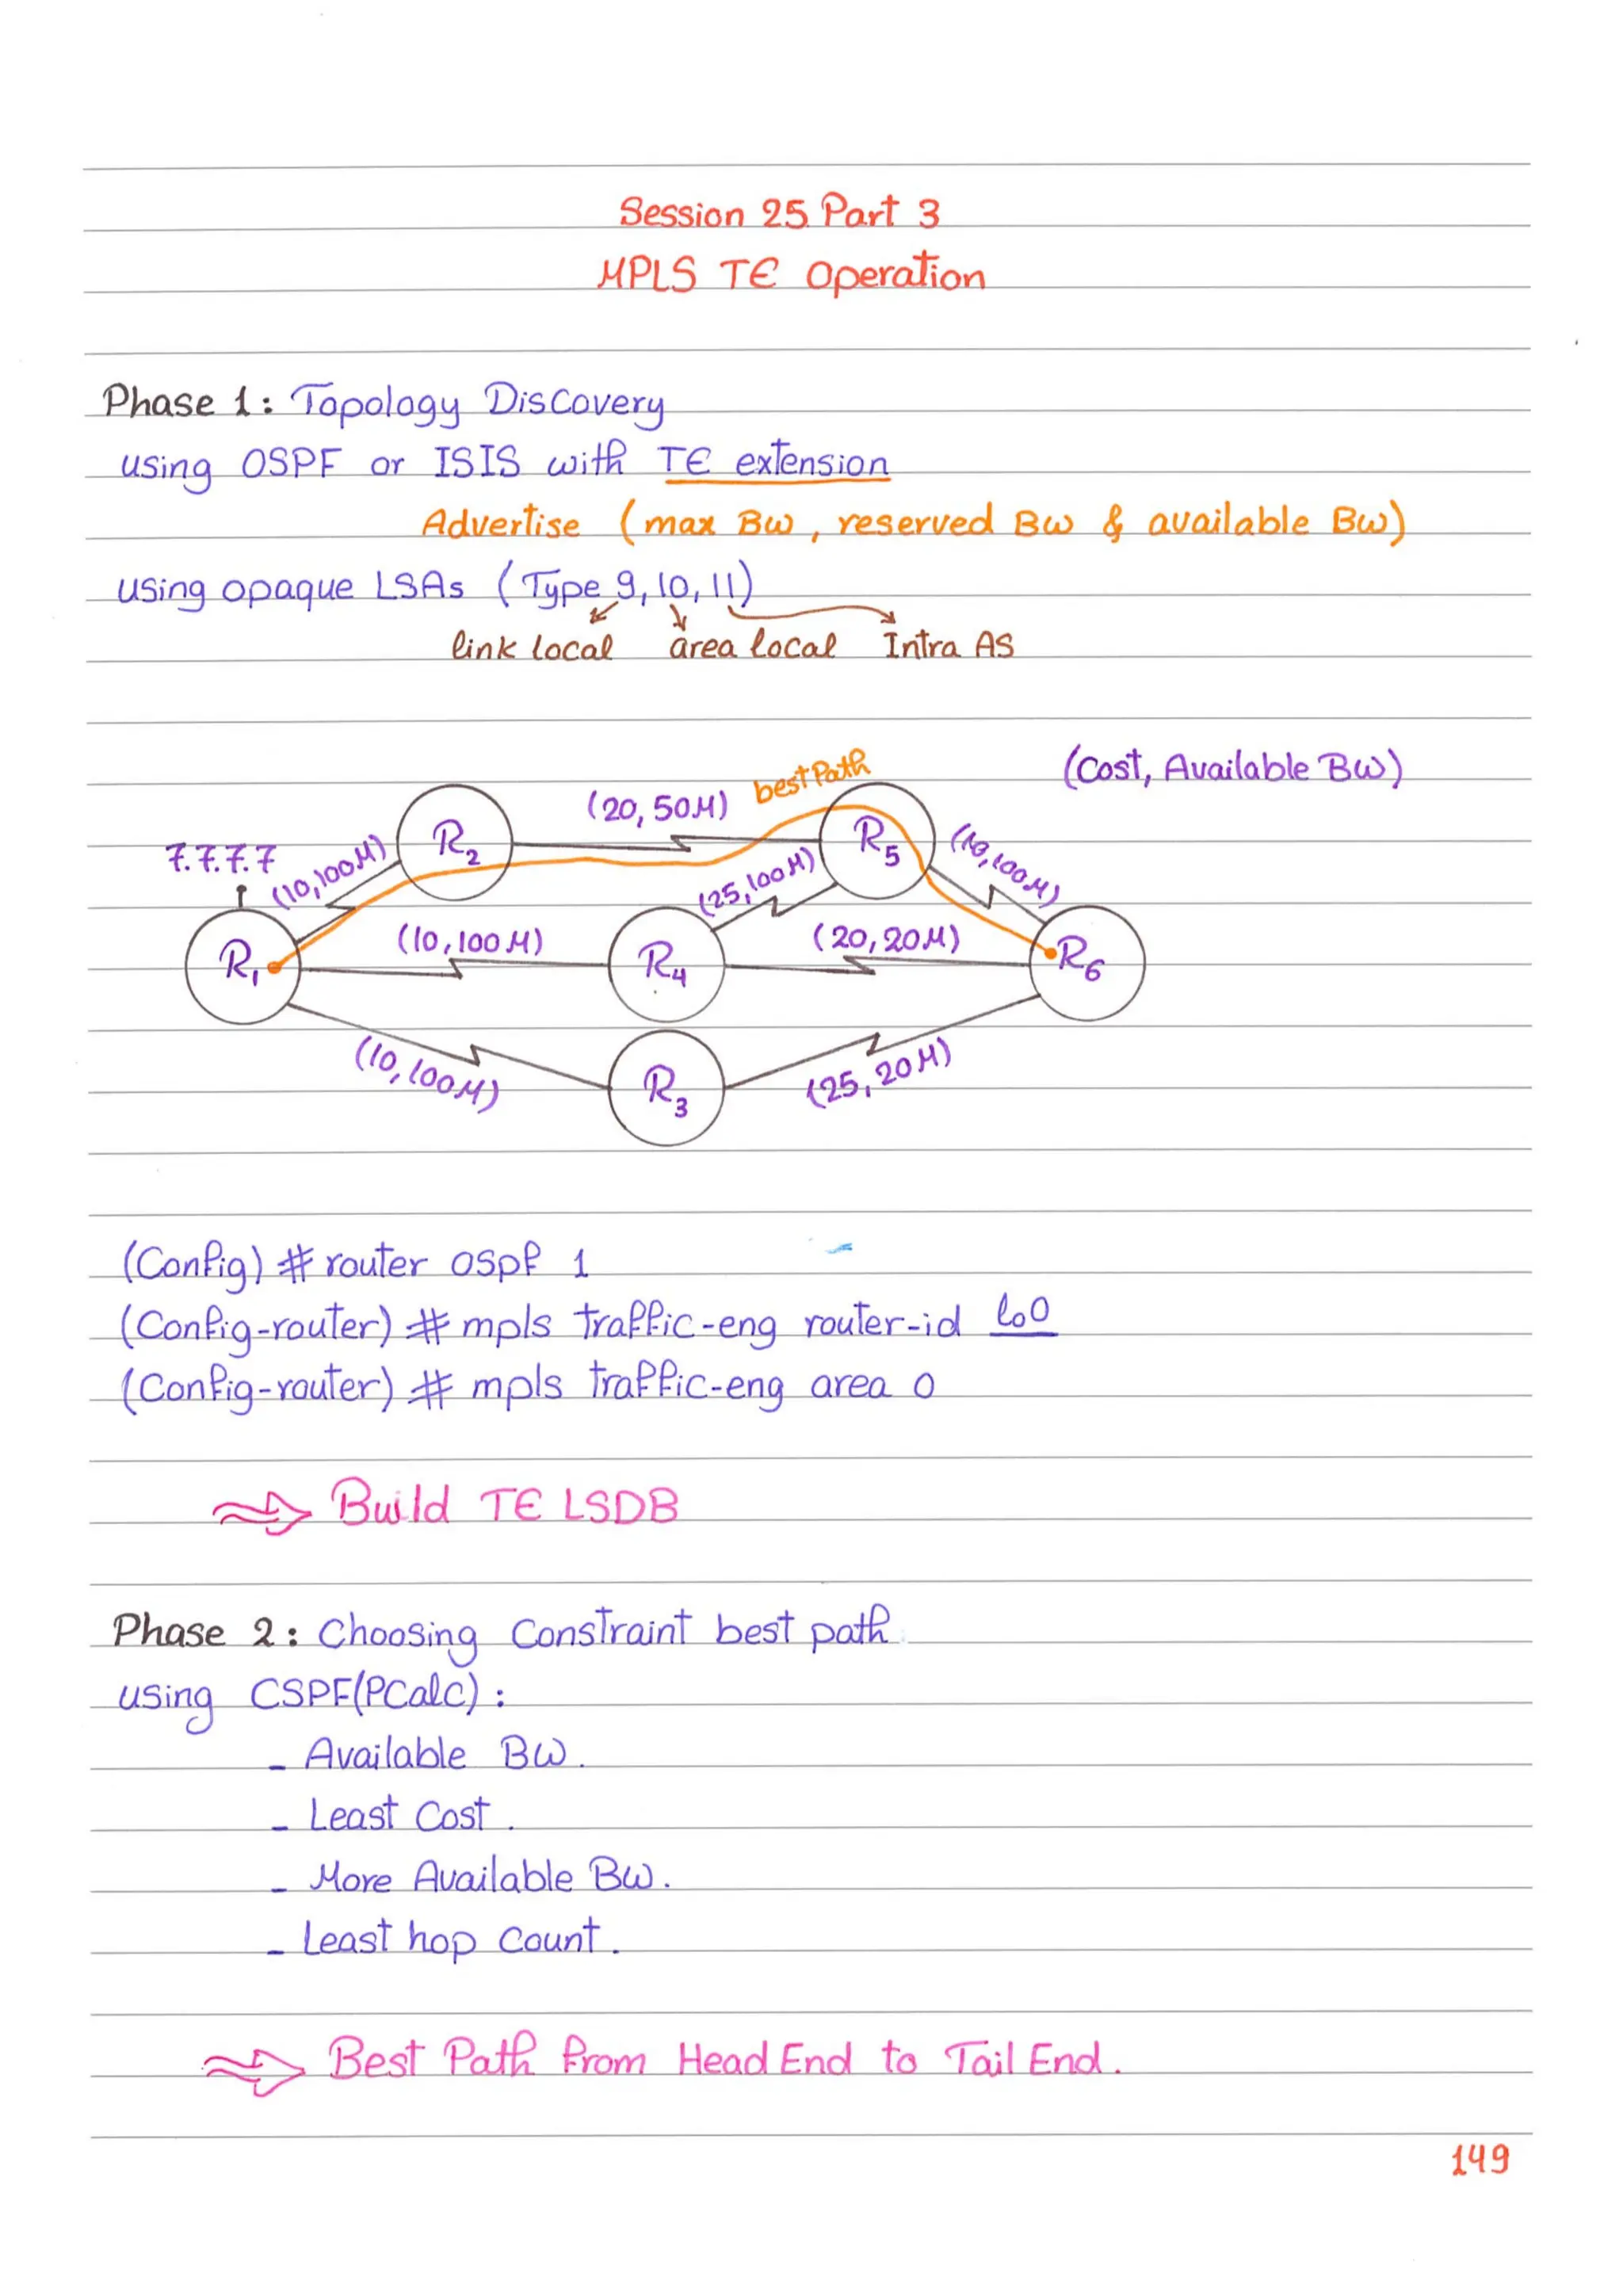 Session 25 Part 3
MPLS TE Operation
Phase 1: Topology Discovery
using OSPF or ISIS with TE extension
Advertise (max Bw, reserved Bw & available Bw)
using opaque LSAs (Type 9,10,11)
link local area local Intra AS
(Cost, Available Bw)
best Path
(20, 50M)
R2
R5
7.7.7.7
(10,100M)
(25,100M)
(10,100M)
R1
(10,100M)
R4
(20,20M)
R6
(10,100M)
R3
(25,20M)
(Config) # router ospf 1
(Config-router) # mpls traffic-eng router-id lo0
(Config-router) # mpls traffic-eng area 0
Build TE LSDB
Phase 2: Choosing Constraint best path
using CSPF(PCalc):
- Available BW.
- Least Cost.
- More Available BW.
- Least hop Count.
Best Path from Head End to Tail End.
149